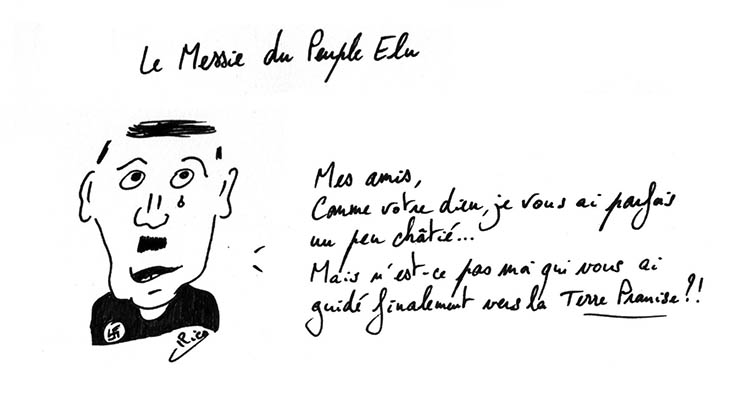 Le Messie du Peuple Elu
Mes amis,
Comme votre dieu, je vous ai parfois
un peu châtié...
Mais n'est-ce pas moi qui vous ai
guidé finalement vers la Terre Promise?!
Rico